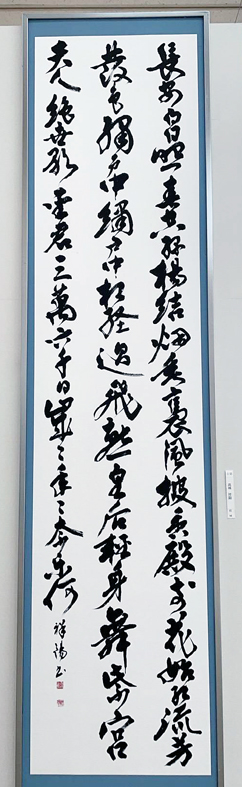 長安白日照春空綠楊結烟桑裊風披香殿前花始紅流芳
發色繡戶中繡戶中相經過飛燕皇后輕身舞紫宮
夫人絕世歌聖君三萬六千日歲々年々奈樂何